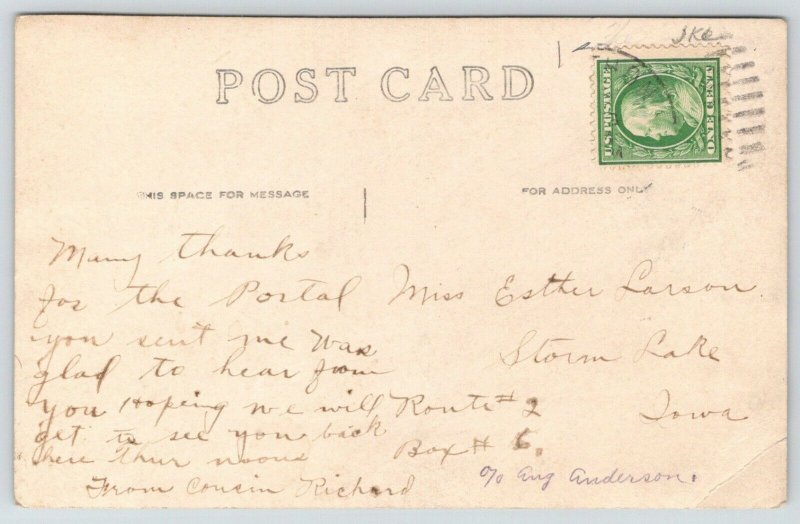 POST CARD
THIS SPACE FOR MESSAGE
FOR ADDRESS ONLY
U.S. POSTAGE
Many thanks
for the Postal
you sent me was
glad to hear from
you Hoping we will
get to see you back
here thur noons
From Cousin Richard
Miss Esther Larson
Storm Lake
Route #2 Iowa
Box # 6.
c/o Aug Anderson.